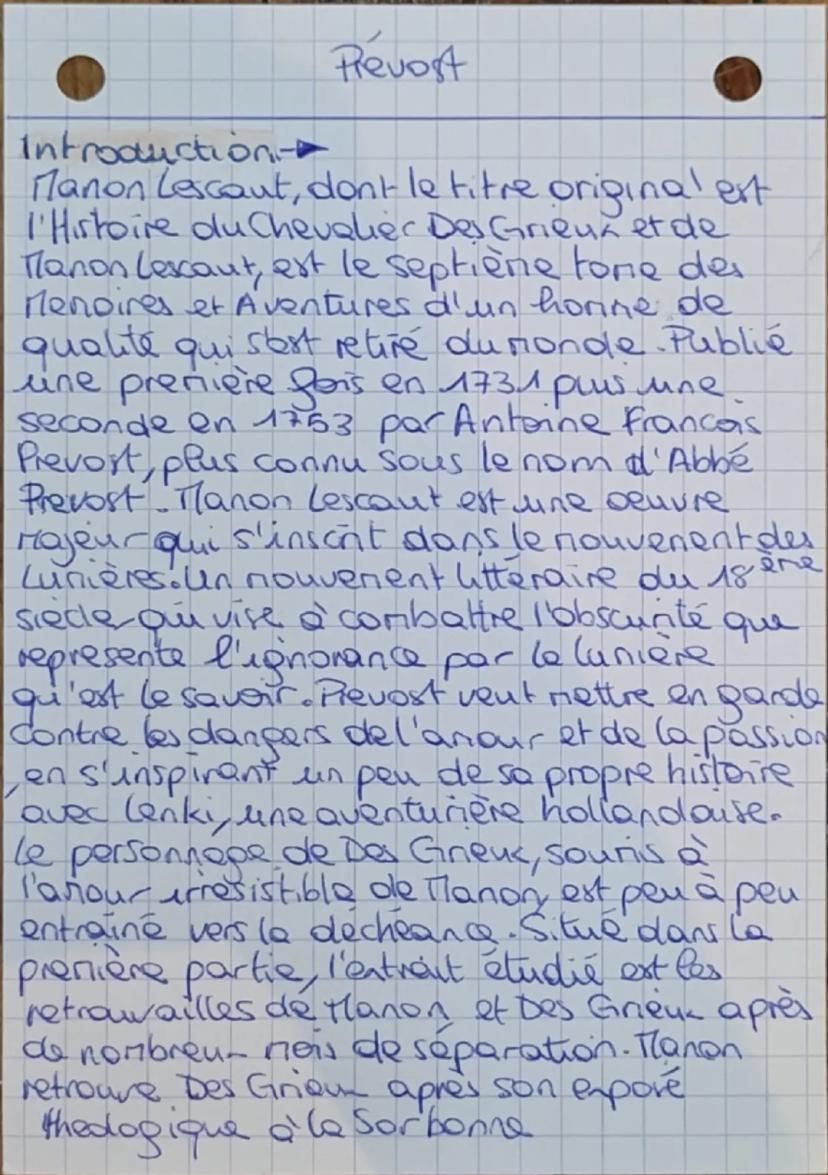 Prévost
Introduction →
Manon Lescaut, dont le titre original est
l'Histoire du Chevalier Des Grieux et de
Manon Lescaut, est le septième tome des
Memoires et Aventures d'un homme de
qualité qui s'est retiré du monde. Publié
une première fois en 1731 puis une
seconde en 1753 par Antoine Francois
Prevost, plus connu sous le nom d'Abbé
Prevost. Manon Lescaut est une oeuvre
majeur qui s'inscrit dans le mouvement des
Lumières. Un mouvement littéraire du 18ème
siècle qui vise à combattre l'obscurité que
represente l'ignorance par la lumière
qu'est le savoir. Prevost veut mettre en garde
contre les dangers de l'amour et de la passion
, en s'inspirant un peu de sa propre histoire
avec Lenki, une aventurière hollandaise.
Le personnage de Des Grieux, soumis à
l'amour irrésistible de Manon, est peu à peu
entraîné vers la déchéance. Situé dans la
première partie, l'extrait étudié est les
retrouvailles de Manon et Des Grieux après
de nombreux mois de séparation. Manon
retrouve Des Grieux après son exposé
théologique à la Sorbonne